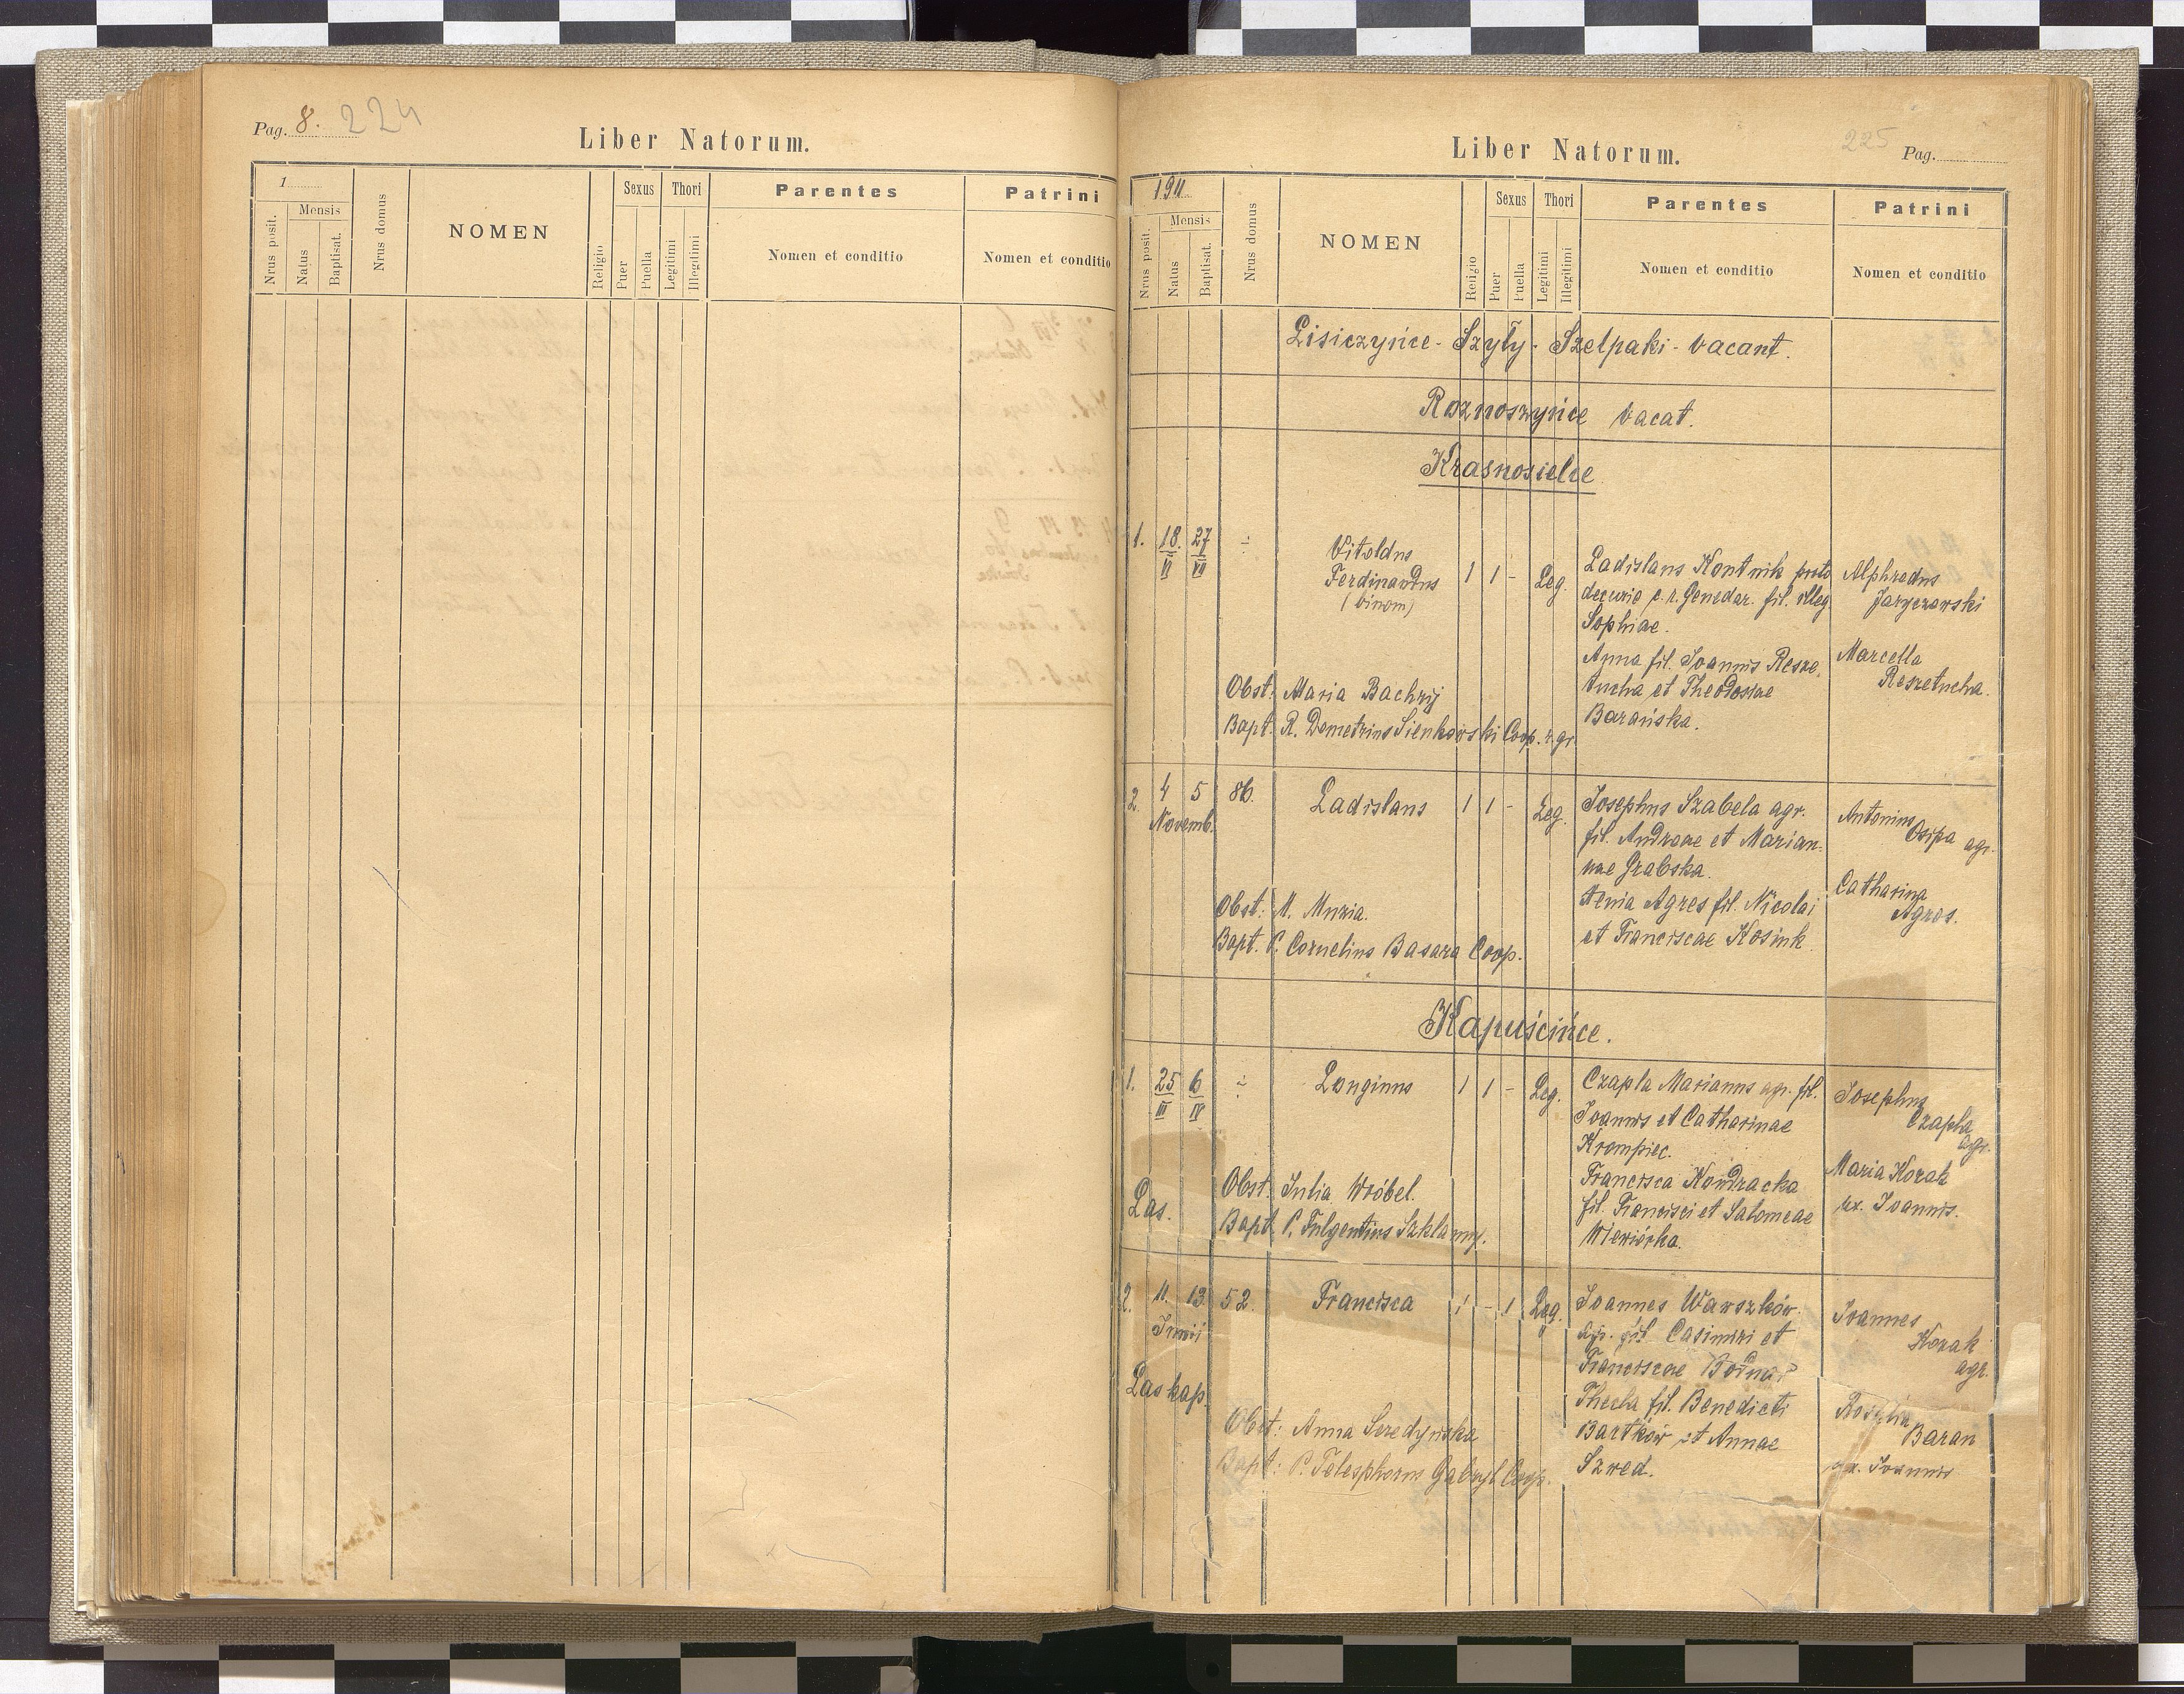 Pag. 8. 224
Liber Natorum.
1
Nrus posit.
Mensis
Natus
Baptisat.
Nrus domus
NOMEN
Religio
Sexus
Puer
Puella
Thori
Legitimi
Illegitimi
Parentes
Nomen et conditio
Patrini
Nomen et conditio
Liber Natorum.
225 Pag.
1911
Nrus posit.
Mensis
Natus
Baptisat.
Nrus domus
NOMEN
Religio
Sexus
Puer
Puella
Thori
Legitimi
Illegitimi
Parentes
Nomen et conditio
Patrini
Nomen et conditio
Lisiczyńce - Szyły - Szelpaki - vacant.
Roznoszyńce vacat.
Krasnosielce
1. 18. VI 27 VII ÷
Vitoldus
Ferdinandus
(binom)
1 1 - Leg.
Ladislaus Kontnik
decurio c. r. Gendar. fil. illeg.
Sophiae.
Anna fil. Joannis Resze
tucha et Theodosiae
Barańska.
Alphredus
Jaryczewski
Marcella
Reszetucha.
Obst: Maria Bachryj
Bapt: R. Demetrius Sienkowski Coop. r. gr.
2. 4 5
Novemb.
86. Ladislaus 1 1 - Leg.
Josephus Szabela agr.
fil. Andreae et Marian-
nae Grabska.
Xenia Agres fil. Nicolai
et Franciscae Kosiuk
Antonius
Osipa agr.
Catharina
Agres.
Obst: M. Muzia.
Bapt. P. Cornelius Basara Coop.
Kapuścińce.
1. 25 III 6 IV ÷ Longinus 1 1 - Leg.
Czapla Marianus agr. fil.
Joannis et Catharinae
Krompiec.
Francisca Kondracka
fil. Francisci et Salomeae
Wiewiórka.
Josephus
Czapla
agr.
Maria Kozak
ux. Joannis.
Las.
Obst. Julia Wróbel.
Bapt. P. Fulgentius Szklanny.
2. 11. 13.
Junii
52. Francisca 1 - 1 Leg.
Joannes Warszków
agr. fil. Casimiri et
Franciscae Bodnar
Thecla fil. Benedicti
Bartków et Annae
Szwed.
Joannes
Kozak
agr.
Rosalia
Baran
ux. Joannis
Las kap.
Obst: Anna Seredyńska
Bapt: P. Telesphorus Gabryl Coop.